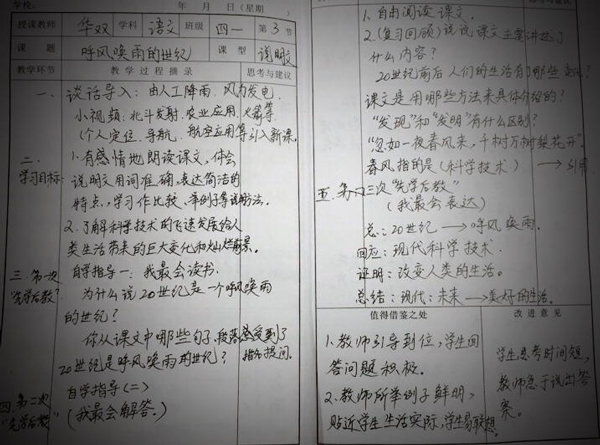 学校: 年 月 日(星期
授课教师 华双 学科 语文 班级 四一 第 3 节
课 题 呼风唤雨的世纪 课 型 说明文
教学环节 教 学 过 程 摘 录 思考与建议
一、谈话导入: 由人工降雨、风力发电、
小视频: 北斗发射、农业应用、火箭等
(个人定位、导航、航空应用等引入新课。
二、
学习目标:
1.有感情地朗读课文, 体会
说明文用词准确,表达简洁的
特点,学习作比较、举例子等说明方法。
2.了解科学技术的飞速发展给人
类生活带来的巨大变化和灿烂前景。
三.第一次
"先学后教":
自学指导一: 我最会读书.
为什么说20世纪是一个呼风唤雨
的世纪?
你从课文中哪些句子,段落感受到了
20世纪是呼风唤雨的世纪?
指名提问。
四.第二次
"先学后教"
自学指导(二)
(我最会解答.)
1.自由阅读课文.
2.(复习回顾)说说课文主要讲述了
什么内容?
20世纪前后人们的生活有了哪些变化?
课文是用哪些方法来具体介绍的?
"发现"和"发明"有什么区别?
"忽如一夜春风来, 千树万树梨花开"
春风指的是(科学技术) → 引用
五. 第三次"先学后教"
(我最会表达)
总: 20世纪 → 呼风唤雨.
回应: 现代科学技术.
证明: 改变人类的生活。
总结: 现代: 未来 → 美好的生活。
值得借鉴之处 改 进 意 见
1.教师引导到位,学生回
答问题积极.
2.教师所举例子鲜明,
贴近学生生活实际,学生易联想.
学生思考时间短,
教师急于说出答
案。